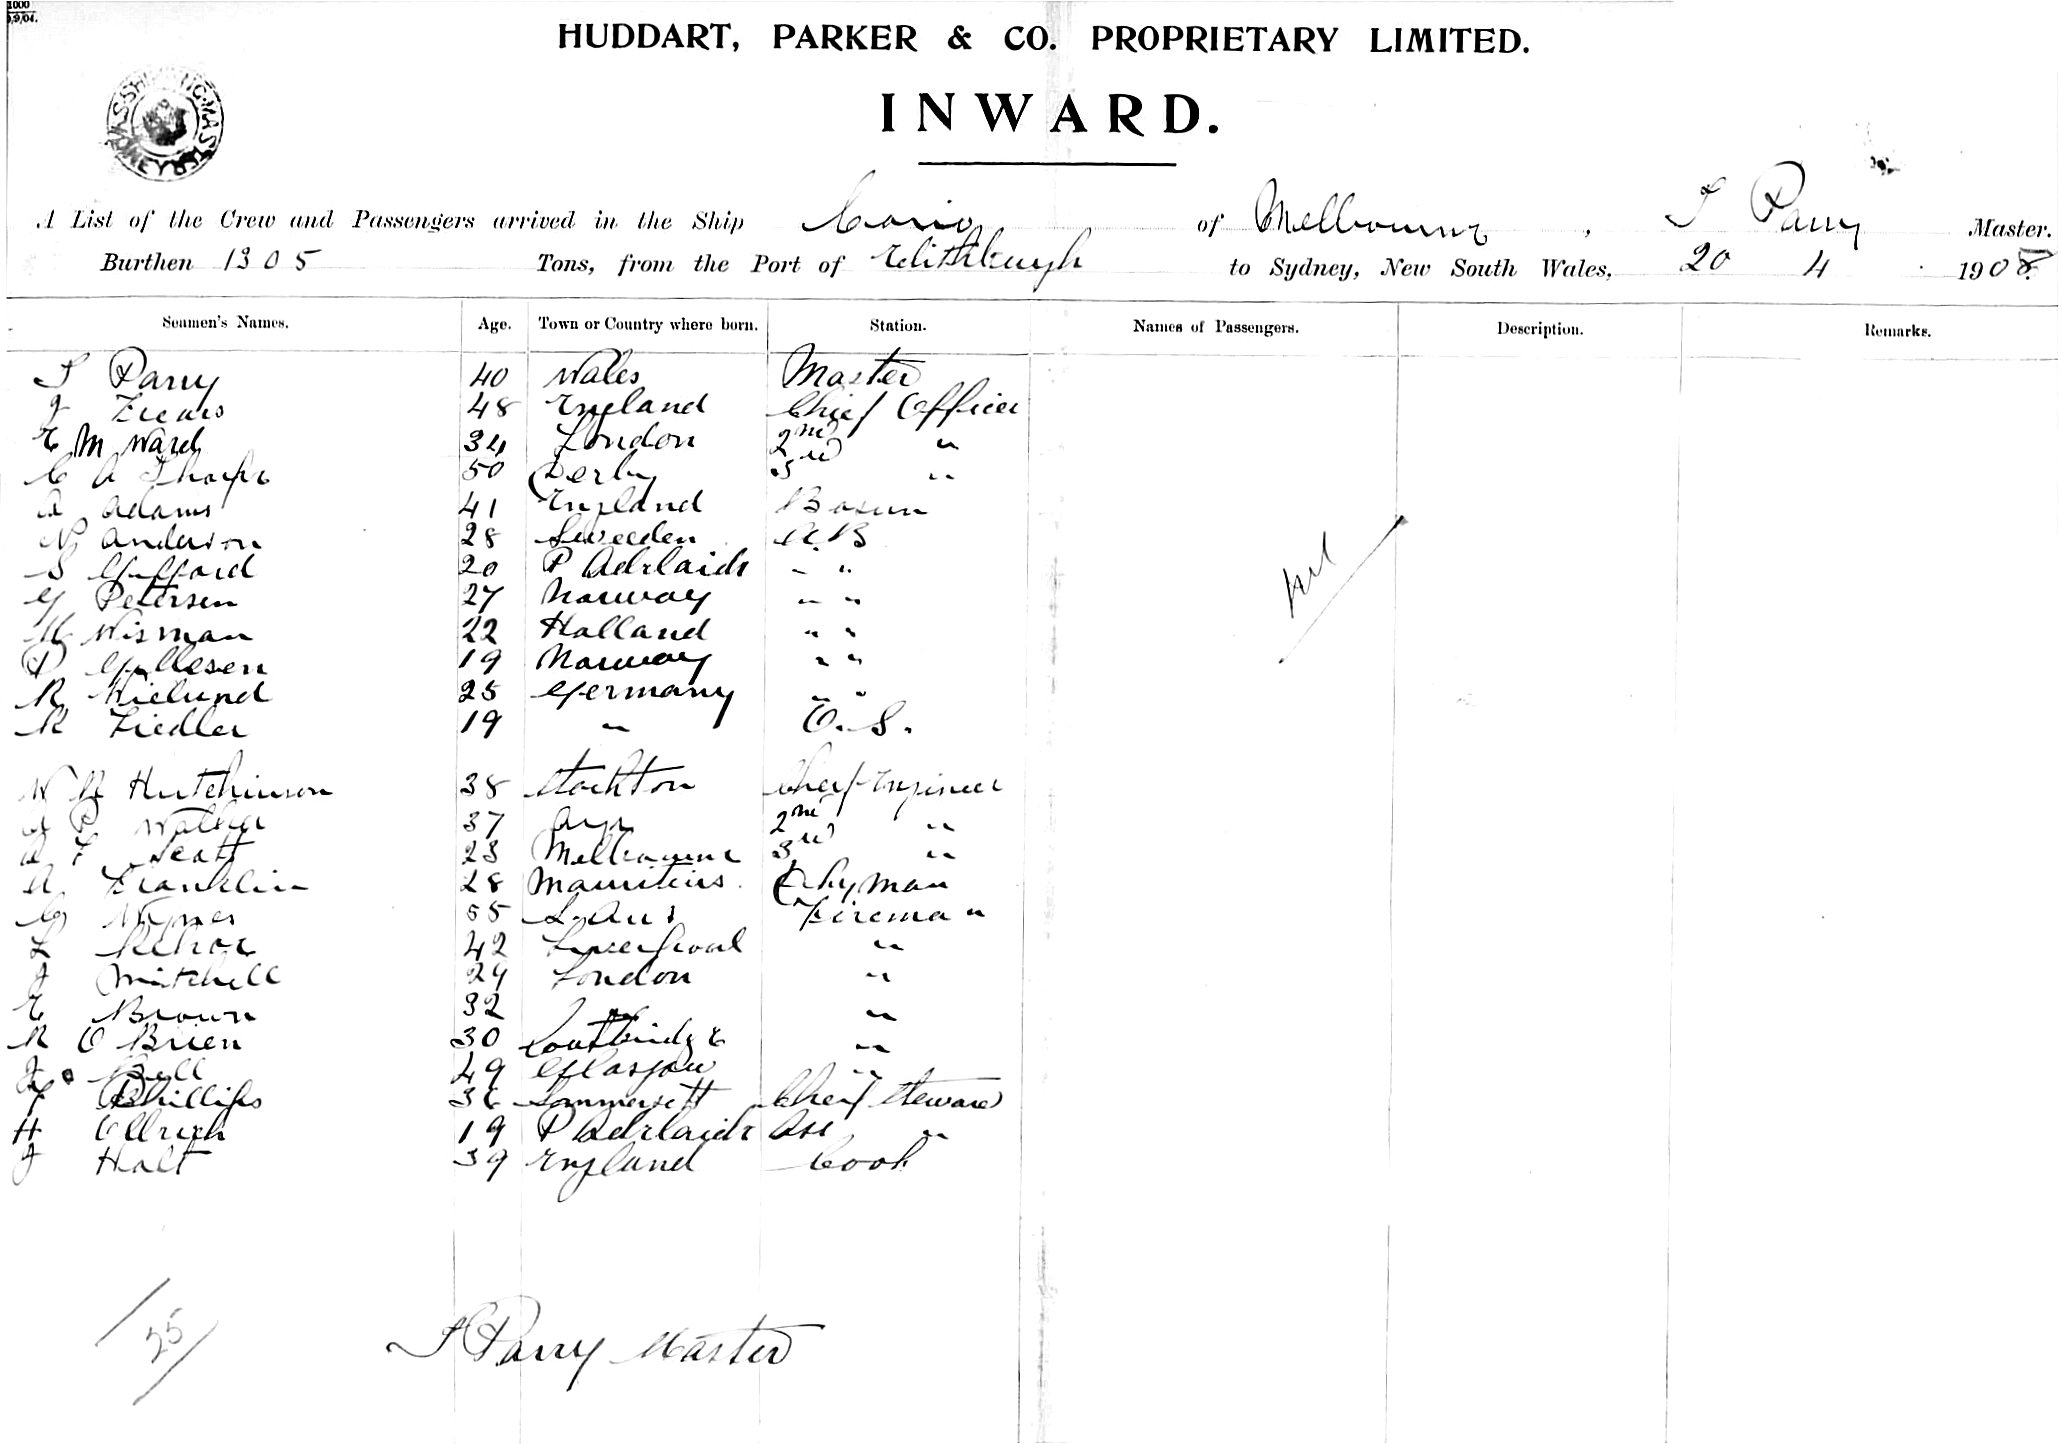 1000
HUDDART, PARKER & CO. PROPRIETARY LIMITED.
INWARD.
A List of the Crew and Passengers arrived in the Ship Corio of Melbourne, T Parry Master.
Burthen 1305 Tons, from the Port of Edithburgh to Sydney, New South Wales, 20 4 1908
Seamen's Names. Age. Town or Country where born. Station. Names of Passengers. Description. Remarks.
T Parry 40 Wales Master
J 48 England Chief Officer
E M Ward 34 London 2nd "
C A Tharpe 50 Derby 3rd "
A Adams 41 England Bosun
N Anderson 28 Sweeden A.B
S Gifford 20 P Adelaide " "
G Petersen 27 Norway " "
H Wisman 22 Holland " "
P Gullesen 19 Norway " "
R Nielund 25 Germany " "
R Fiedler 19 " O.S.
nil
W R Hutchinson 38 Stockton Chief Engineer
J P Walker 37 Ayr 2nd "
A F Scott 23 Melbourne 3rd "
A Franklin 28 Mauritius Dkyman
G 55 Fireman
L Kehoe 42 Liverpool "
J Mitchell 29 London "
E Brown 32 " "
R O Brien 30 Coatbridge "
J Bell 49 Glasgow "
Phillips 36 Sommersett Chief Steward
H Ullrich 19 P Adelaide Ass "
J Halt 39 England Cook
25
T Parry Master